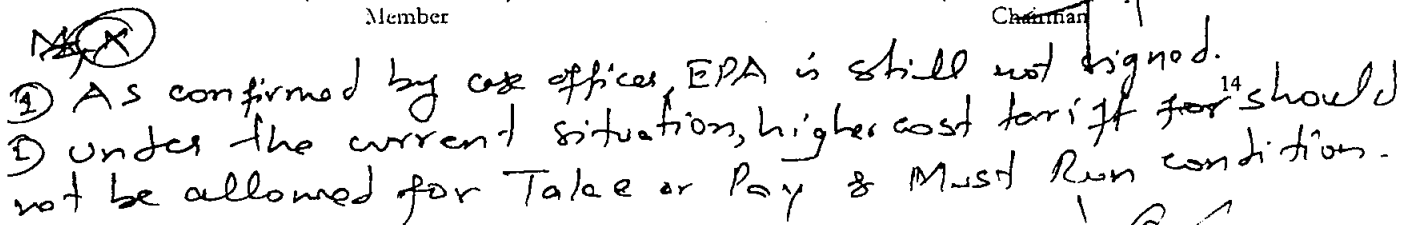 Member Chairman
① As confirmed by case officer, EPA is still not signed.
② Under the current situation, higher cost tariff for 14 should
not be allowed for Take or Pay & Must Run condition.